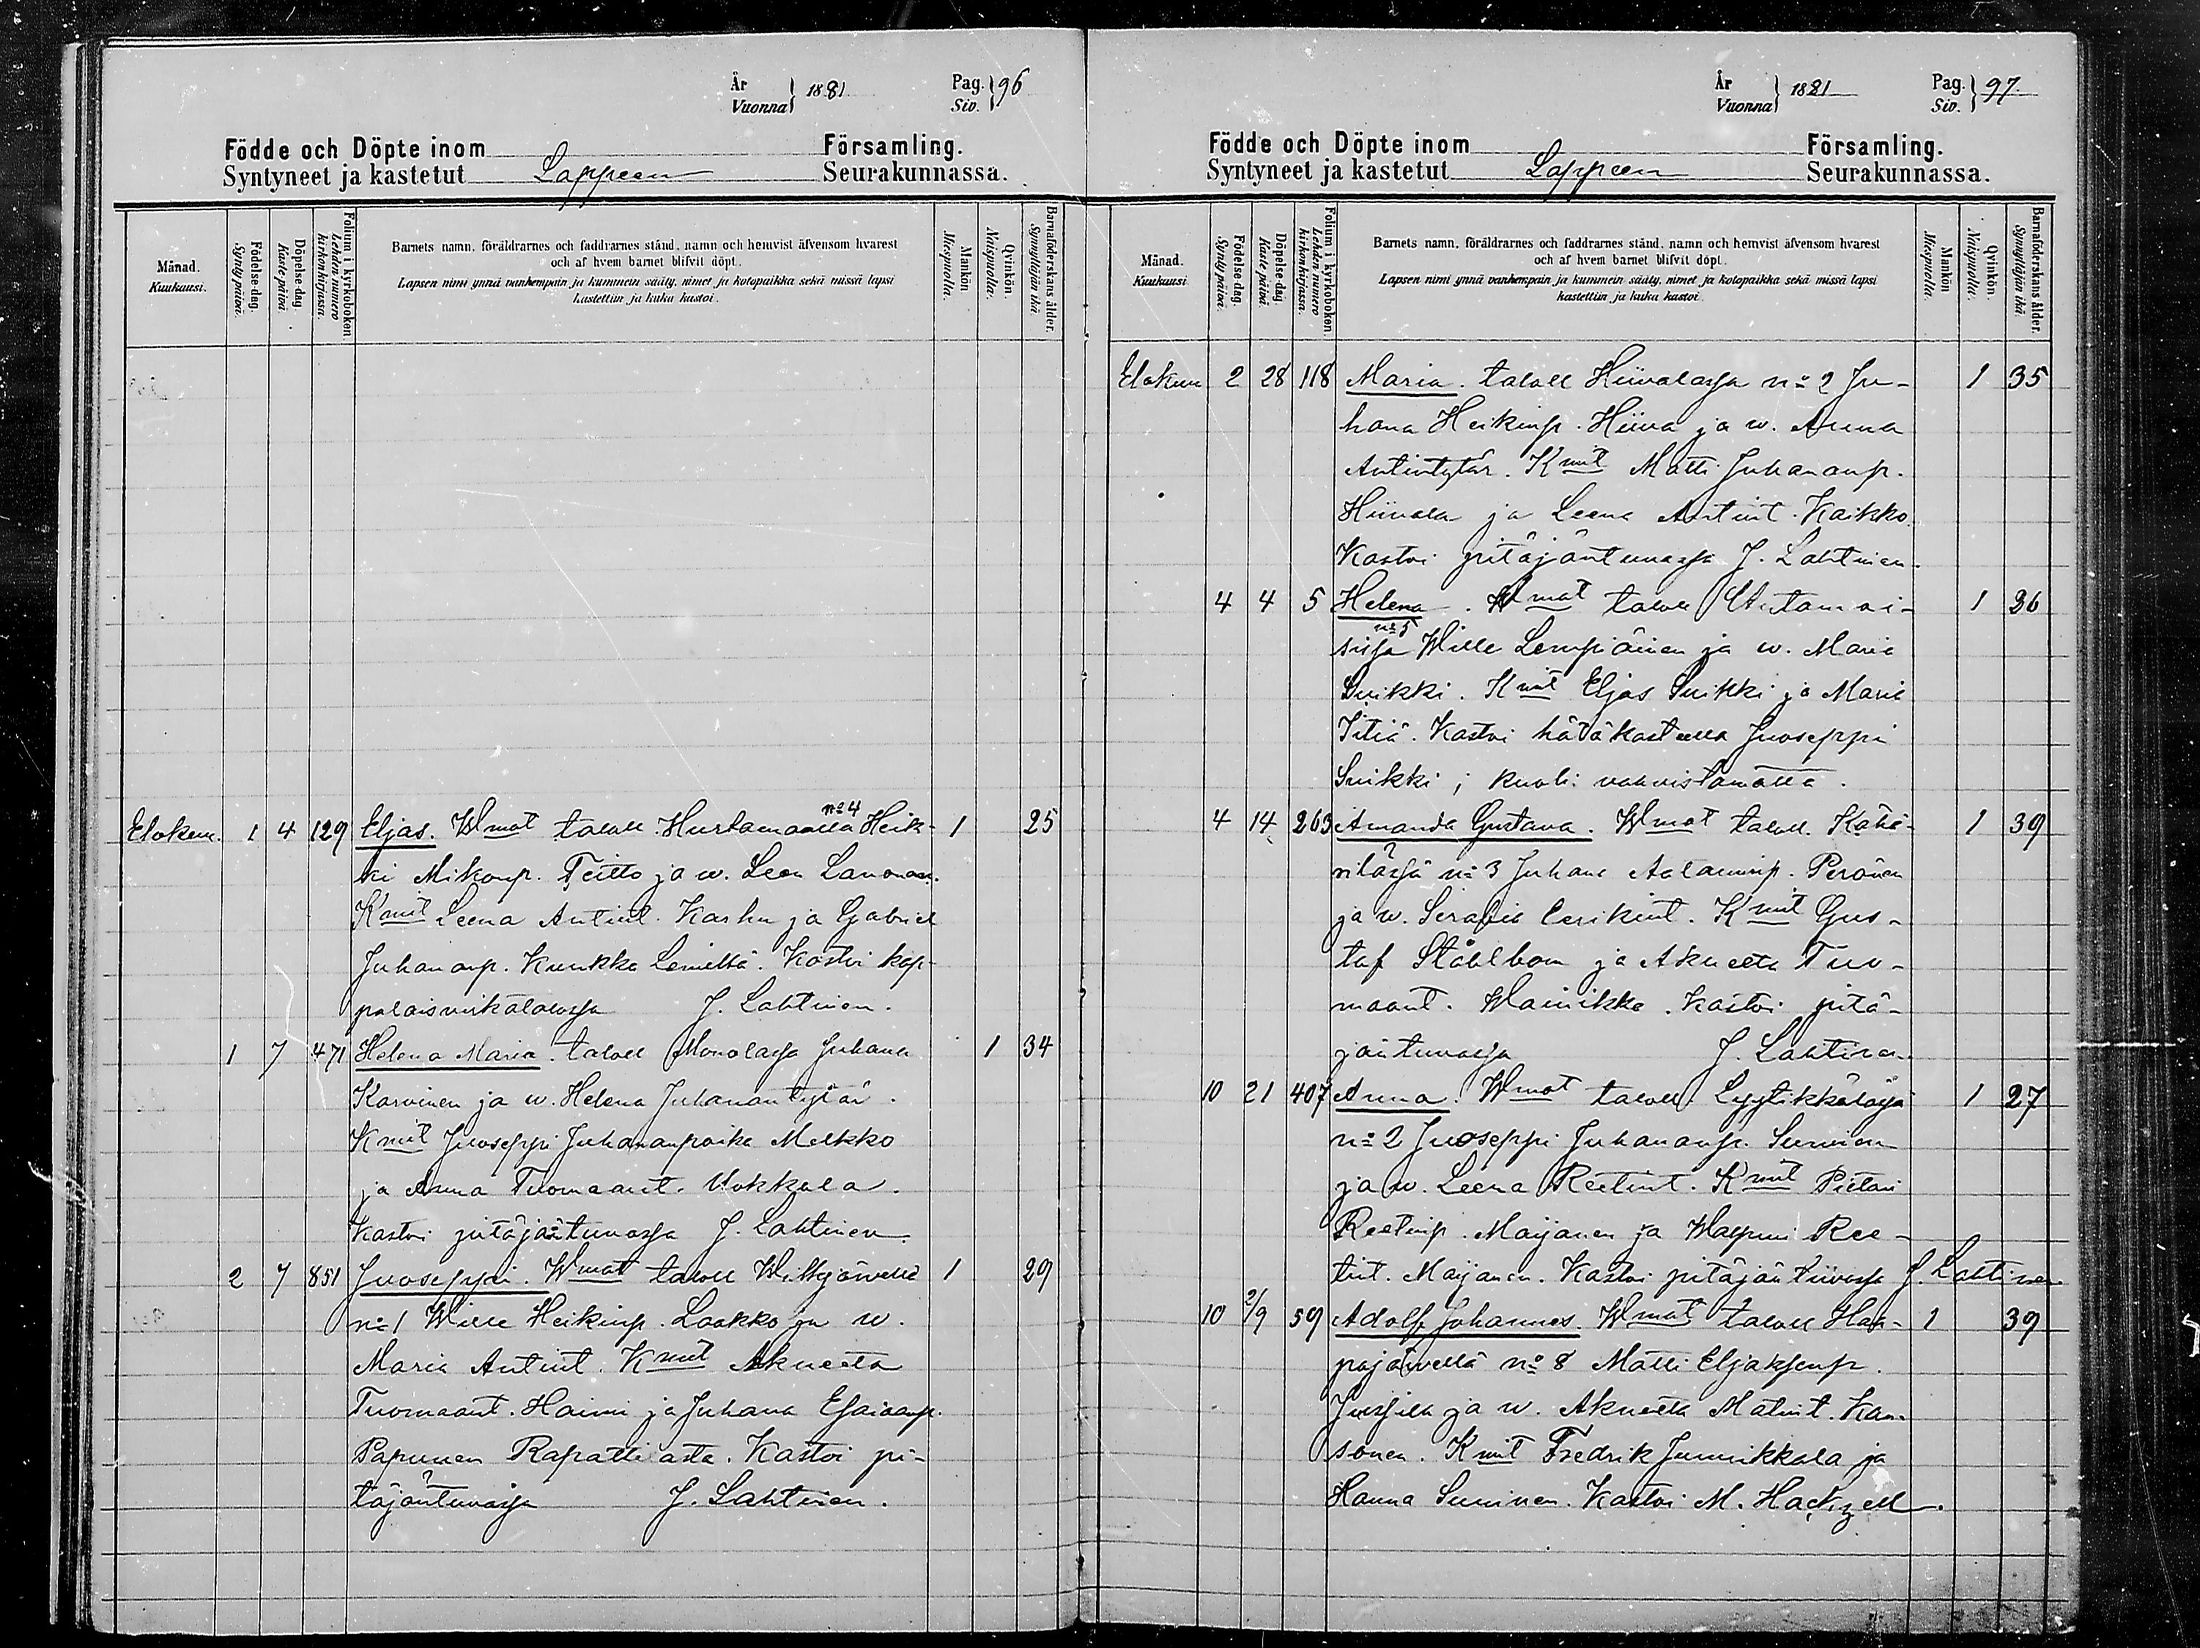 År
Vuonna } 1881
Pag.
Siv. } 96
Födde och Döpte inom Församling.
Syntyneet ja kastetut Lappeen Seurakunnassa.
Månad.
Kuukausi.
Födelse-dag.
Syntypäivä.
Döpelse-dag.
Kastepäivä
Folium i kyrkoboken.
Lehden numero kirkonkirjassa.
Barnets namn, föräldrarnes och faddrarnes stånd, namn och hemvist äfvensom hvarest
och af hvem barnet blifvit döpt.
Lapsen nimi ynnä vanhempain ja kummein sääty, nimet ja kotopaikka sekä missä lapsi
kastettiin ja kuka kastoi.
Mankön
Miespuolia.
Qvinkön.
Naispuolia.
Barnaföderskans ålder.
Synnyttäjän ikä.
Elokuu. 1 4 129 Eljas. Wmat taloll. Hurtamaalla n:o 4 Heik- 1 25
ki Mikonp. Teitto ja w. Leen
Kmit Leena Antint. Karhu ja Gabriel
Juhananp. Kunkka Lemiltä. Kastoi kap-
palaisvirkatalossa J. Lahtinen.
1 7 471 Helena Maria. taloll Monolassa Juhana 1 34
Karvinen ja w. Helena Juhanantytär.
Kmit Juoseppi Juhananpoika Melkko
ja Anna Tuomaant. Ukkola.
Kastoi pitäjäntuvassa J. Lahtinen.
2 7 851 Juoseppi. Wmat taloll Wilkjärvellä 1 29
n:o 1 Wille Heikinp. Laakko ja w.
Maria Antint. Kmit Akneeta
Tuomaant. Haimi ja Juhana Esaianp.
Papunen Rapattilasta. Kastoi pi-
täjäntuvassa J. Lahtinen.
År
Vuonna } 1881
Pag.
Siv. } 97
Födde och Döpte inom Församling.
Syntyneet ja kastetut Lappeen Seurakunnassa.
Månad.
Kuukausi
Födelse-dag.
Syntypäivä.
Döpelse-dag.
Kastepäivä.
Folium i kyrkoboken.
Lehden numero kirkonkirjassa.
Barnets namn, föräldrarnes och faddrarnes stånd, namn och hemvist äfvensom hvarest
och af hvem barnet blifvit döpt.
Lapsen nimi ynnä vanhempain ja kummein sääty, nimet ja kotopaikka sekä missä lapsi
kastettiin ja kuka kastoi.
Mankön
Miespuolia.
Qvinkön.
Naispuolia.
Barnaföderskans ålder.
Synnyttäjän ikä.
Elokuu 2 28 118 Maria. taloll Hiivalassa n:o 2 Ju- 1 35
hana Heikinp. Hiiva ja w. Anna
Antintytär. Kmit Matti Juhananp.
Hiivala ja Leena Antint. Kaikko.
Kastoi pitäjäntuvassa J. Lahtinen.
4 4 5 Helena. Wmat taloll 1 36
sissa n:o 5 Wille Lempiäinen ja w. Maria
Suikki. Kmit Eljas Suikki ja Maria
Sitiä. Kastoi hätäkasteella Juoseppi
Suikki; kuoli vahvistamatta.
4 14 263 Amanda Gustava. Wmat taloll. Kähä- 1 39
rilässä n:o 3 Juhana Aataminp. Peränen
ja w. Serafia Eerikint. Kmit Gus-
taf Ståhlbom ja Akneeta Tuo-
maant. Wainikka. Kastoi pitä-
jäntuvassa J. Lahtinen.
10 21 407 Anna. Wmat taloll Lyytikkälässä 1 27
n:o 2 Juoseppi Juhananp. Suninen
ja w. Leena Reetint. Kmit Pietari
Reetinp. Maijanen ja Walpuri Ree-
tint. Maijanen. Kastoi pitäjäntuvassa J. Lahtinen
10 2/9 59 Adolf Johannes. Wmat taloll Haa- 1 39
pajärvellä n:o 8 Matti Eljaksenp.
Jussila ja w. Akneeta Matint. Kan-
sonen. Kmit Fredrik Junnikkala ja
Hanna Suninen. Kastoi M. Hackzell.